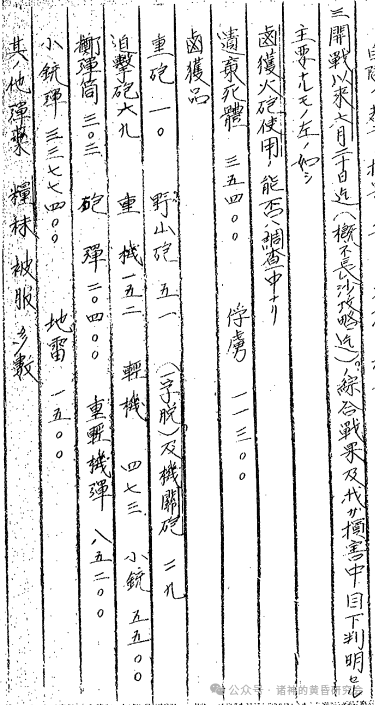 三 開戰以来六月二十日迄(概ネ長沙攻略迄)ノ綜合戰果及我ガ損害中目下判明セル
主要ナルモノ左ノ如シ
鹵獲火砲使用ノ能否ハ調査中ナリ
遺棄死體 三五四〇〇 俘虜 一一三〇〇
鹵獲品
重砲 一〇 野山砲 五一 (字脱)及機關砲 二九
迫擊砲六九 重機一五二 輕機 四七三 小銃 五五〇〇
擲彈筒 三〇三 砲彈二〇四〇〇 重輕機彈 八五二〇〇
小銃彈 三三七七四〇〇 地雷 一五〇〇
其ノ他彈藥 糧秣 被服 多數
公众号·诸神的黄昏研究会